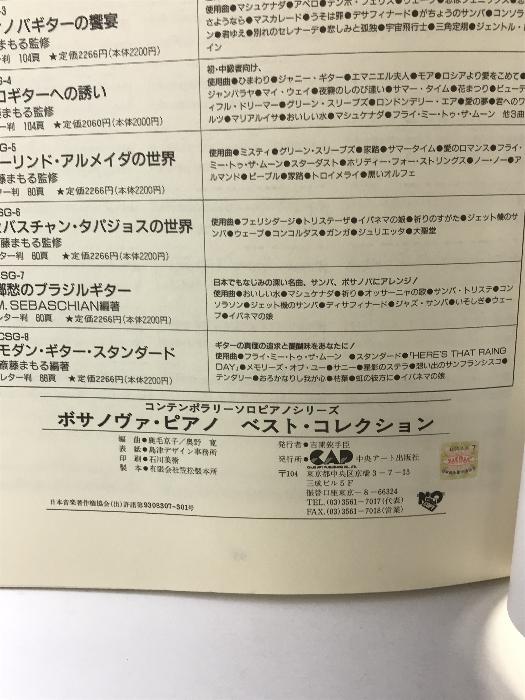 -3
ノバギターの饗宴
まもる監修
ー判 104頁 ★定価2266円(本体2200円)
使用曲●マシュケナダ●アペロ●テンポ・フェリス●
さようなら●マスカレード●うそは罪●デサフィナード●がちょうのサンバ●コンソラ
ン●君ゆえ●別れのセレナーデ●悲しみと孤独●宇宙飛行士●三角定規●ジェントル・
イン
G-4
ロギターへの誘い
藤まもる監修
ター判 104頁 ★定価2060円(本体2000円)
初・中級者向け、
使用曲●ひまわり●ジャニー・ギター●エマニエル夫人●モア●ロシアより愛をこめて●
ジャンバラヤ●マイ・ウェイ●夜霧のしのび逢い●サマー・タイム●花まつり●ビューテ
ィフル・ドリーマー●グリーン・スリーブス●ロンドンデリー・エア●愛の夢●君へのワ
ルツ●マリアルイサ●おいしい水●マシュケナダ●フライ・ミー・トゥ・ザ・ムーン 他3曲
G-5
ーリンド・アルメイダの世界
藤まもる監修
ター判 80頁 ★定価2266円(本体2200円)
使用曲●ミスティ●グリーン・スリーブス●家路●サマータイム●愛のロマンス●フライ・
ミー・トゥ・ザ・ムーン●スターダスト●ホリディー・フォー・ストリングス●ノー・ノー●ア
ルマンド●ピープル●家路●トロイメライ●黒いオルフェ
SG-6
バスチャン・タパジョスの世界
藤まもる監修
レター判 60頁 ★定価2266円(本体2200円)
使用曲●フェリシダージ●トリステーザ●イパネマの娘●祈りのすがた●ジェット機のサ
ンバ●ウェーブ●コンコルダス●ガンガ●ジュリエッタ●大聖堂
SG-7
郷愁のブラジルギター
M.SEBASCHIAN編著
レター判 80頁 ★定価2266円(本体2200円)
日本でもなじみの深い名曲、サンバ、ボサノバにアレンジ!
使用曲●おいしい水●マシュケナダ●祈り●オッサーニャの歌●サンバ・トリステ●コン
ソラソン●ジェット機のサンバ●ディサフィナード●ジャズ・サンバ●いそしぎ●ウェー
ブ●イパネマの娘
CSG-8
モダン・ギター・スタンダード
斎藤まもる編著
レター判 88頁 ★定価2266円(本体2200円)
ギターの真価の追求と醍醐味をあなたに!
使用曲●フライ・ミー・トゥ・ザ・ムーン ●スタンダード●「HERE'S THAT RAING
DAY」●メモリーズ・オブ・ユー●サニー●星影のステラ●想い出のサンフランシスコ●
テンダリー●おろかなりし我が心●枯葉●虹の彼方に●イパネマの娘
コンテンポラリーソロピアノシリーズ
ボサノヴァ・ピアノ ベスト・コレクション
編 曲●鹿毛京子/奥野 寛
表 紙●島津デザイン事務所
印 刷●石川美術
製 本●有限会社笠松製本所
発行者●吉東弥手臣
発行所●CAD 中央アート出版社
〒104 東京都中央区京橋3-7-13
三成ビル5F
振替口座東京-8-66324
TEL.(03)3561-7017(代表)
FAX.(03)3561-7018(営業)
日本音楽著作権協会(出)許諾第9308307-301号